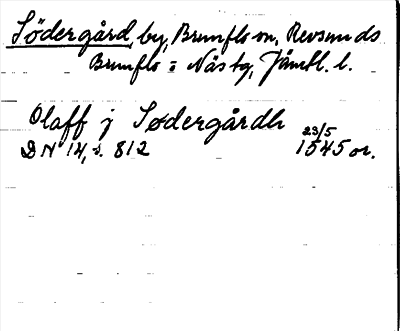 Södergård, by, Brunflo sn, Revsunds
Brunflo = Näs tg, Jämtl. l.
Olaff j Sødergårdh 23/5
DN 14, s. 812 1545 or.